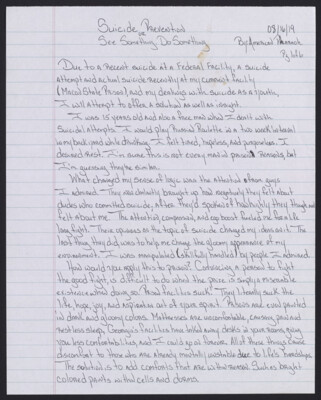 Suicide Prevention
or
See Something, Do Something
03/16/19
By
Pg 1 of 6
Due to a recent suicide at a Federal Facility, a suicide
attempt and actual suicide recently at my current facility
(Macon State Prison), and my dealings with suicide as a youth,
I will attempt to offer a solution as well as insight.
I was 15 years old and not a free man when I dealt with
suicidal attempts. I would play Russian Roulette in a two week interval
in my backyard while drinking. I felt tired, hopeless, and purposeless. I
desired rest. I'm sure this is not every man in prison's reasons, but
I'm guessing they're similar.
What changed my sense of logic was the attention from guys
I admired. They deliberately brought up how negatively they felt about
dudes who committed suicide. After, they'd speak of how highly they thought and
felt about me. The attention, compassion, and ego boost fueled me for a life
long fight. Their opinions on the topic of suicide changed my ideas of it. The
last thing they did was to help me change the gloomy appearance of my
environment. I was manipulated (skillfully handled) by people I admired.
How would you apply this to prison? Convincing a person to fight
the good fight, is difficult to do when the prize is simply a miserable
existence within doors, so. Prison facilities suck! They literally suck the
life, hope, joy, and inspiration out of your spirit. Prisons are even painted
in drab and gloomy colors. Mattresses are uncomfortable, causing pain and
restless sleep. Georgia's facilities have taken away desks in your rooms, giving
you less comfortabilities, and I could go on forever. All of these things cause
discomfort to those who are already mentally unstable due to life's hardships.
The solution is to add comforts that are within reason. Such as bright
colored paints within cells and dorms.